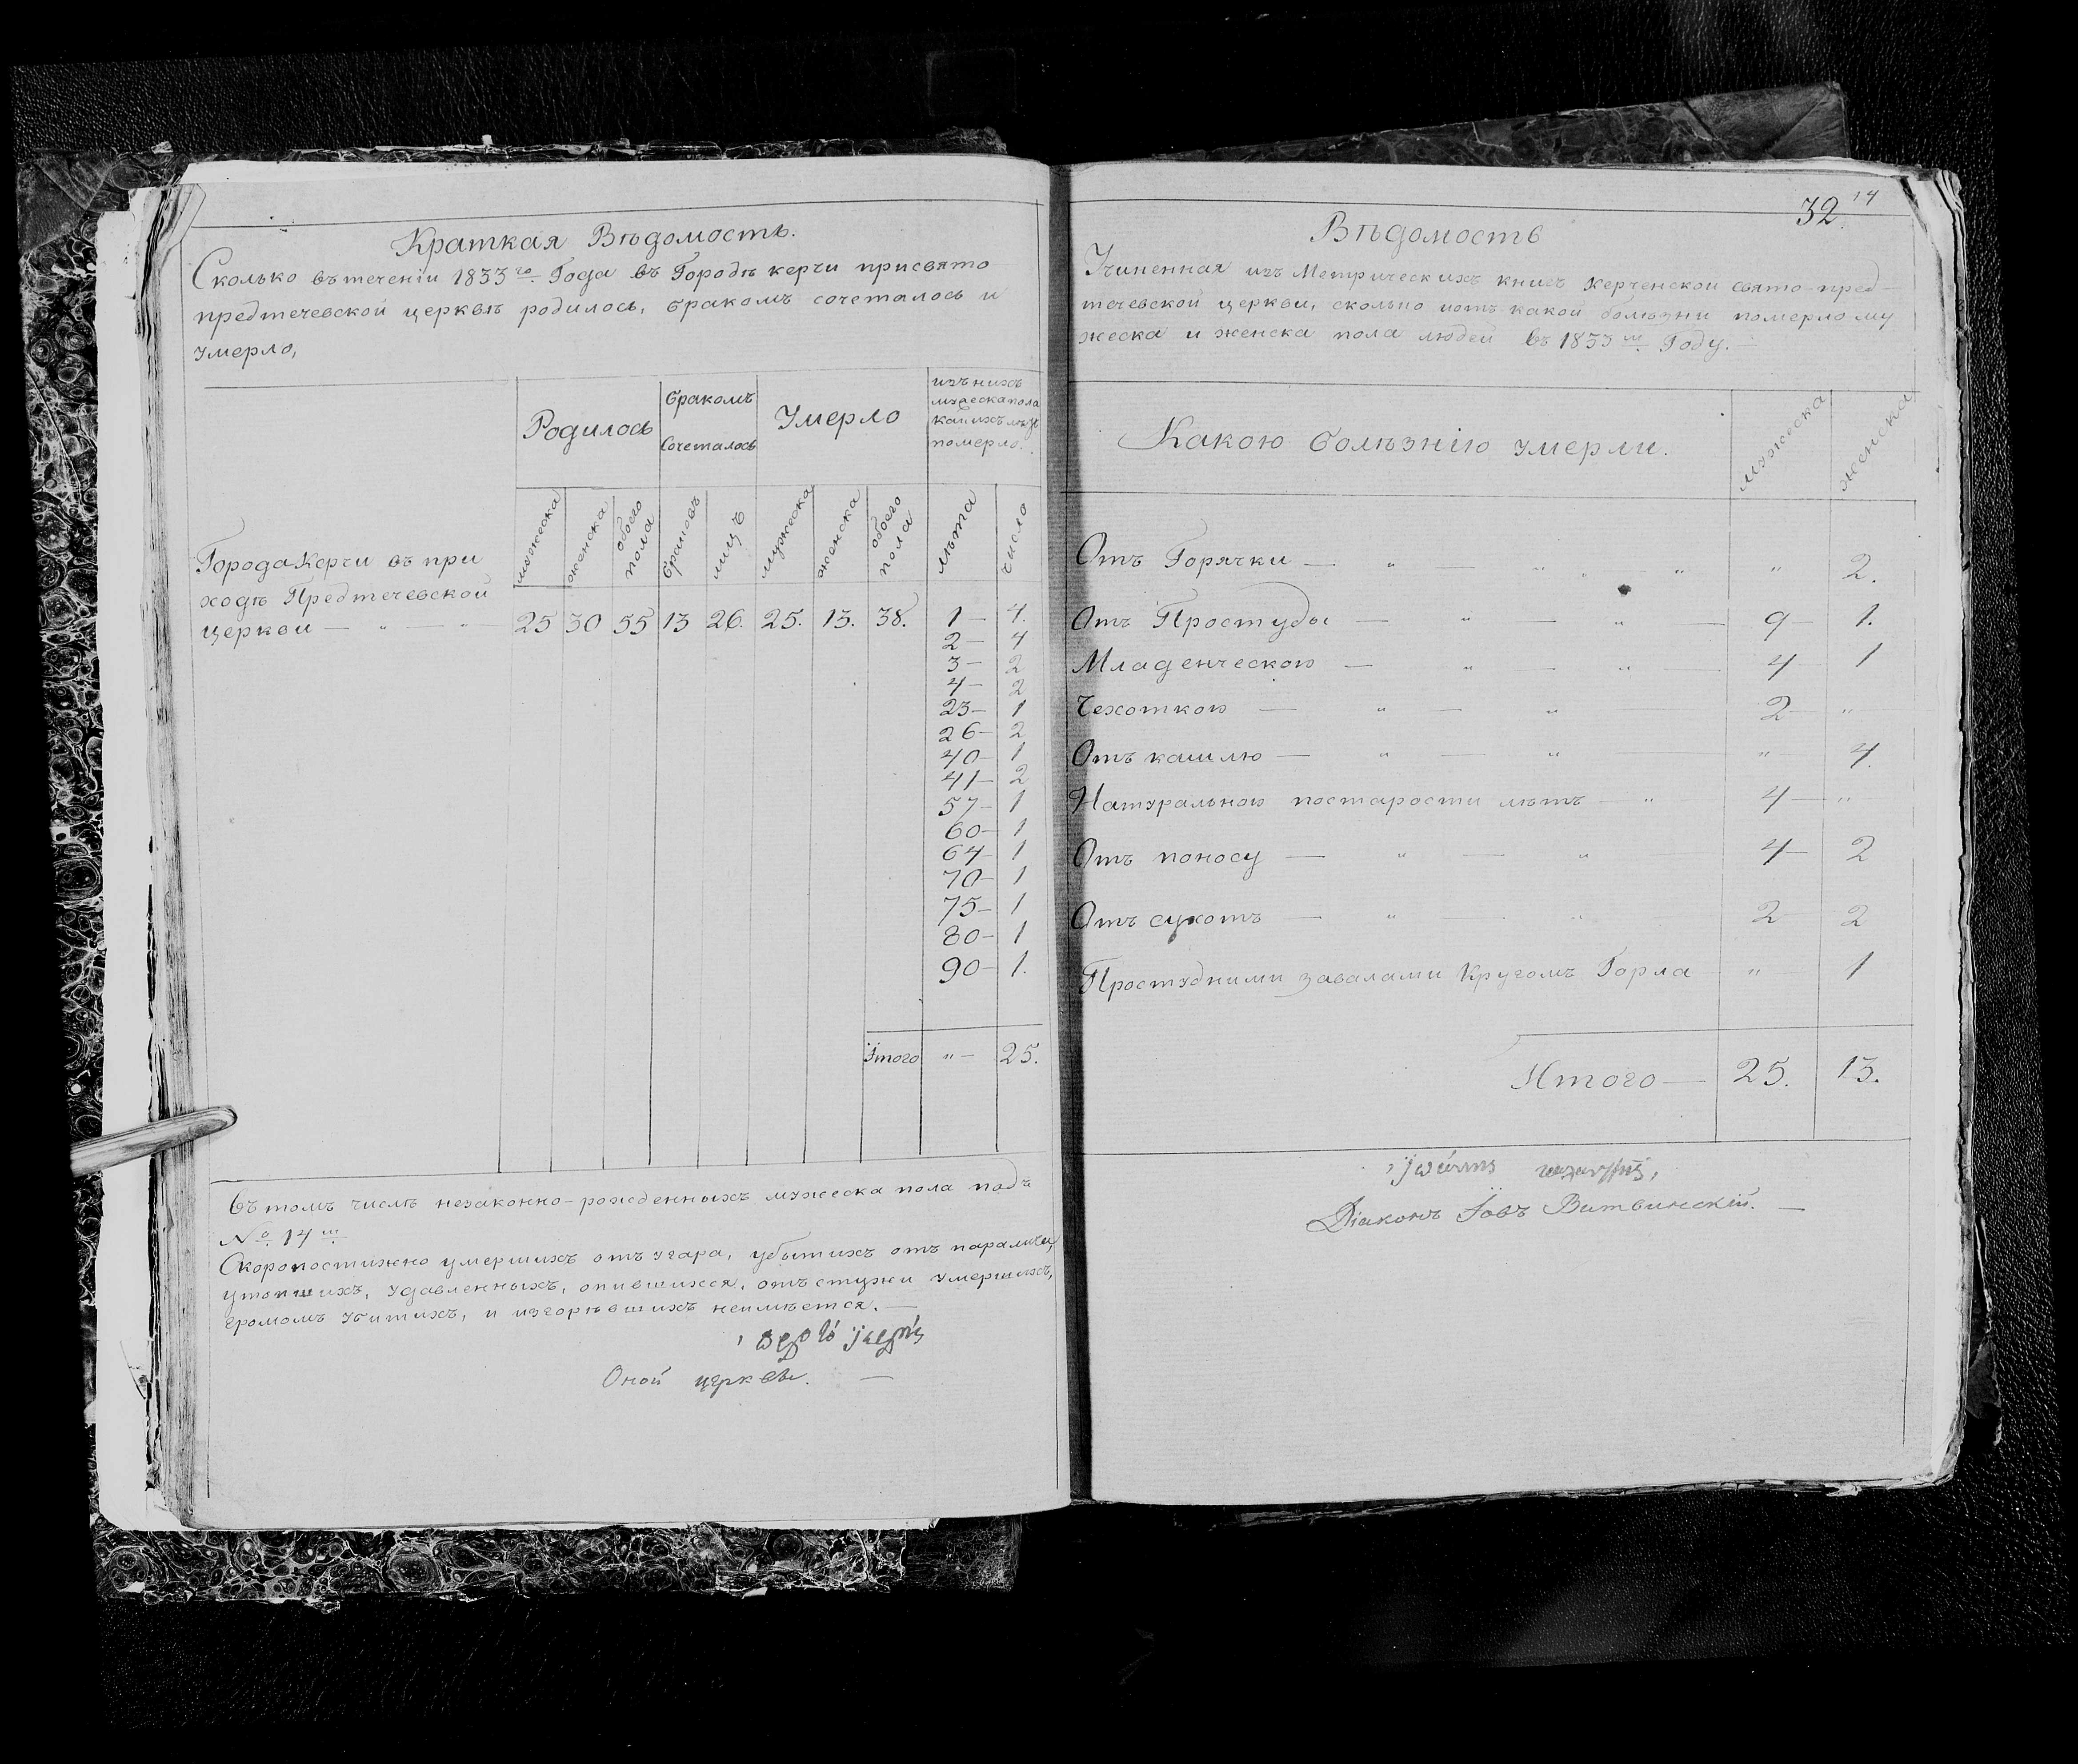 Краткая Вѣдомость.
Сколько въ теченіи 1833го. Года въ Городѣ керчи присвято
предтечевской церквѣ родилось, бракомъ сочеталось и
умерло,
Родилось
бракомъ
Сочеталось
Умерло
изъ нихъ
мужеска пола
каких лѣтъ
померло.
мужеска
женска
обоего пола
браковъ
лицъ
мужеска
женска
обоего пола
лѣта
число
Города Керчи въ при
ходѣ Предтечевской
церкви — „ — „ — 25 30 55 13 26. 25. 13. 38. 1 — 4.
2 — 4
3 — 2
4 — 2
23 — 1
26 — 2
40 — 1
41 — 2
57 — 1
60 — 1
64 — 1
70 — 1
75 — 1
80 — 1
90 — 1.
Итого „ — 25.
Въ томъ числѣ незаконно-рожденныхъ мужеска пола подъ
No. 14м.
Скоропостижно умершихъ отъ угара, убытихъ отъ паралича,
утопшихъ, удавленныхъ, опившихся, отъ стужи умершихъ,
громомъ убитихъ, и изгорѣвшихъ неимѣется. —
Оной церквы. —
32. 14
Вѣдомость
Учиненная изъ Метрическихъ книгъ Керченской свято-пред-
течевской церкви, сколько иотъ какой болѣзни померло му
жеска и женска пола людей въ 1833м. Году. —
Какою болѣзнію умерли.
мужеска
женска
Отъ Горячки — „ — „ „ — „ „ 2.
Отъ Простуды — „ — „ — 9 — 1.
Младенческою — „ — „ — 4 1
Чехоткою — „ — „ 2 „
Отъ кашлю — „ — „ „ 4.
Натуральною постарости лѣтъ — „ 4 — „
Отъ поносу — „ — „ 4 — 2
Отъ сухотъ — „ — „ 2 2
Простудними завалами Кругомъ Горла „ 1
Итого — 25. 13.
Діаконъ Іовъ Витвинскій. —